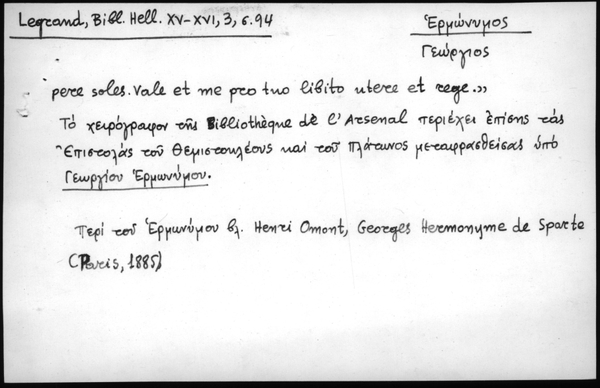 Legrand, Bibl. Hell. XV-XVI, 3, σ. 94
Ἑρμώνυμος
Γεώργιος
pere soles. Vale et me pro tuo libito utere et rege.»
Τὸ χειρόγραφον τῆς Bibliothèque de l'Arsenal περιέχει ἐπίσης τὰς
Ἐπιστολὰς τοῦ Θεμιστοκλέους καὶ τοῦ Πλάτωνος μεταφρασθείσας ὑπὸ
Γεωργίου Ἑρμωνύμου.
Περὶ τοῦ Ἑρμωνύμου βλ. Henri Omont, Georges Hermonyme de Sparte
(Paris, 1885)